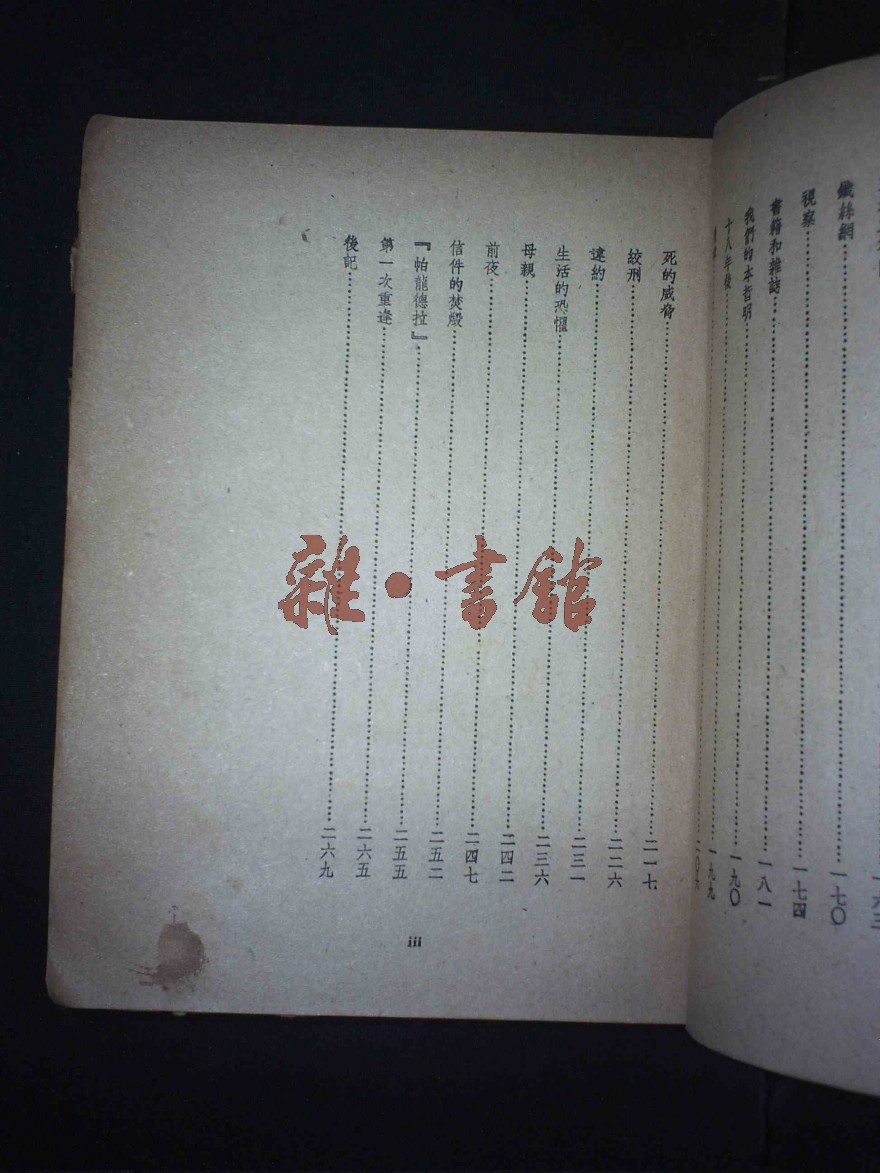 一六三
鐵絲網……一七〇
視察……一七四
書籍和雜誌……一八一
我們的本哲明……一九〇
十八年後……一九九
二〇六
死的威脅……二一七
絞刑……二二六
違約……二三一
生活的恐懼……二三六
母親……二四二
前夜……二四七
信件的焚燬……二五二
『帕龍德拉』……二五五
第一次重逢……二六五
後記……二六九
iii
雜·書館